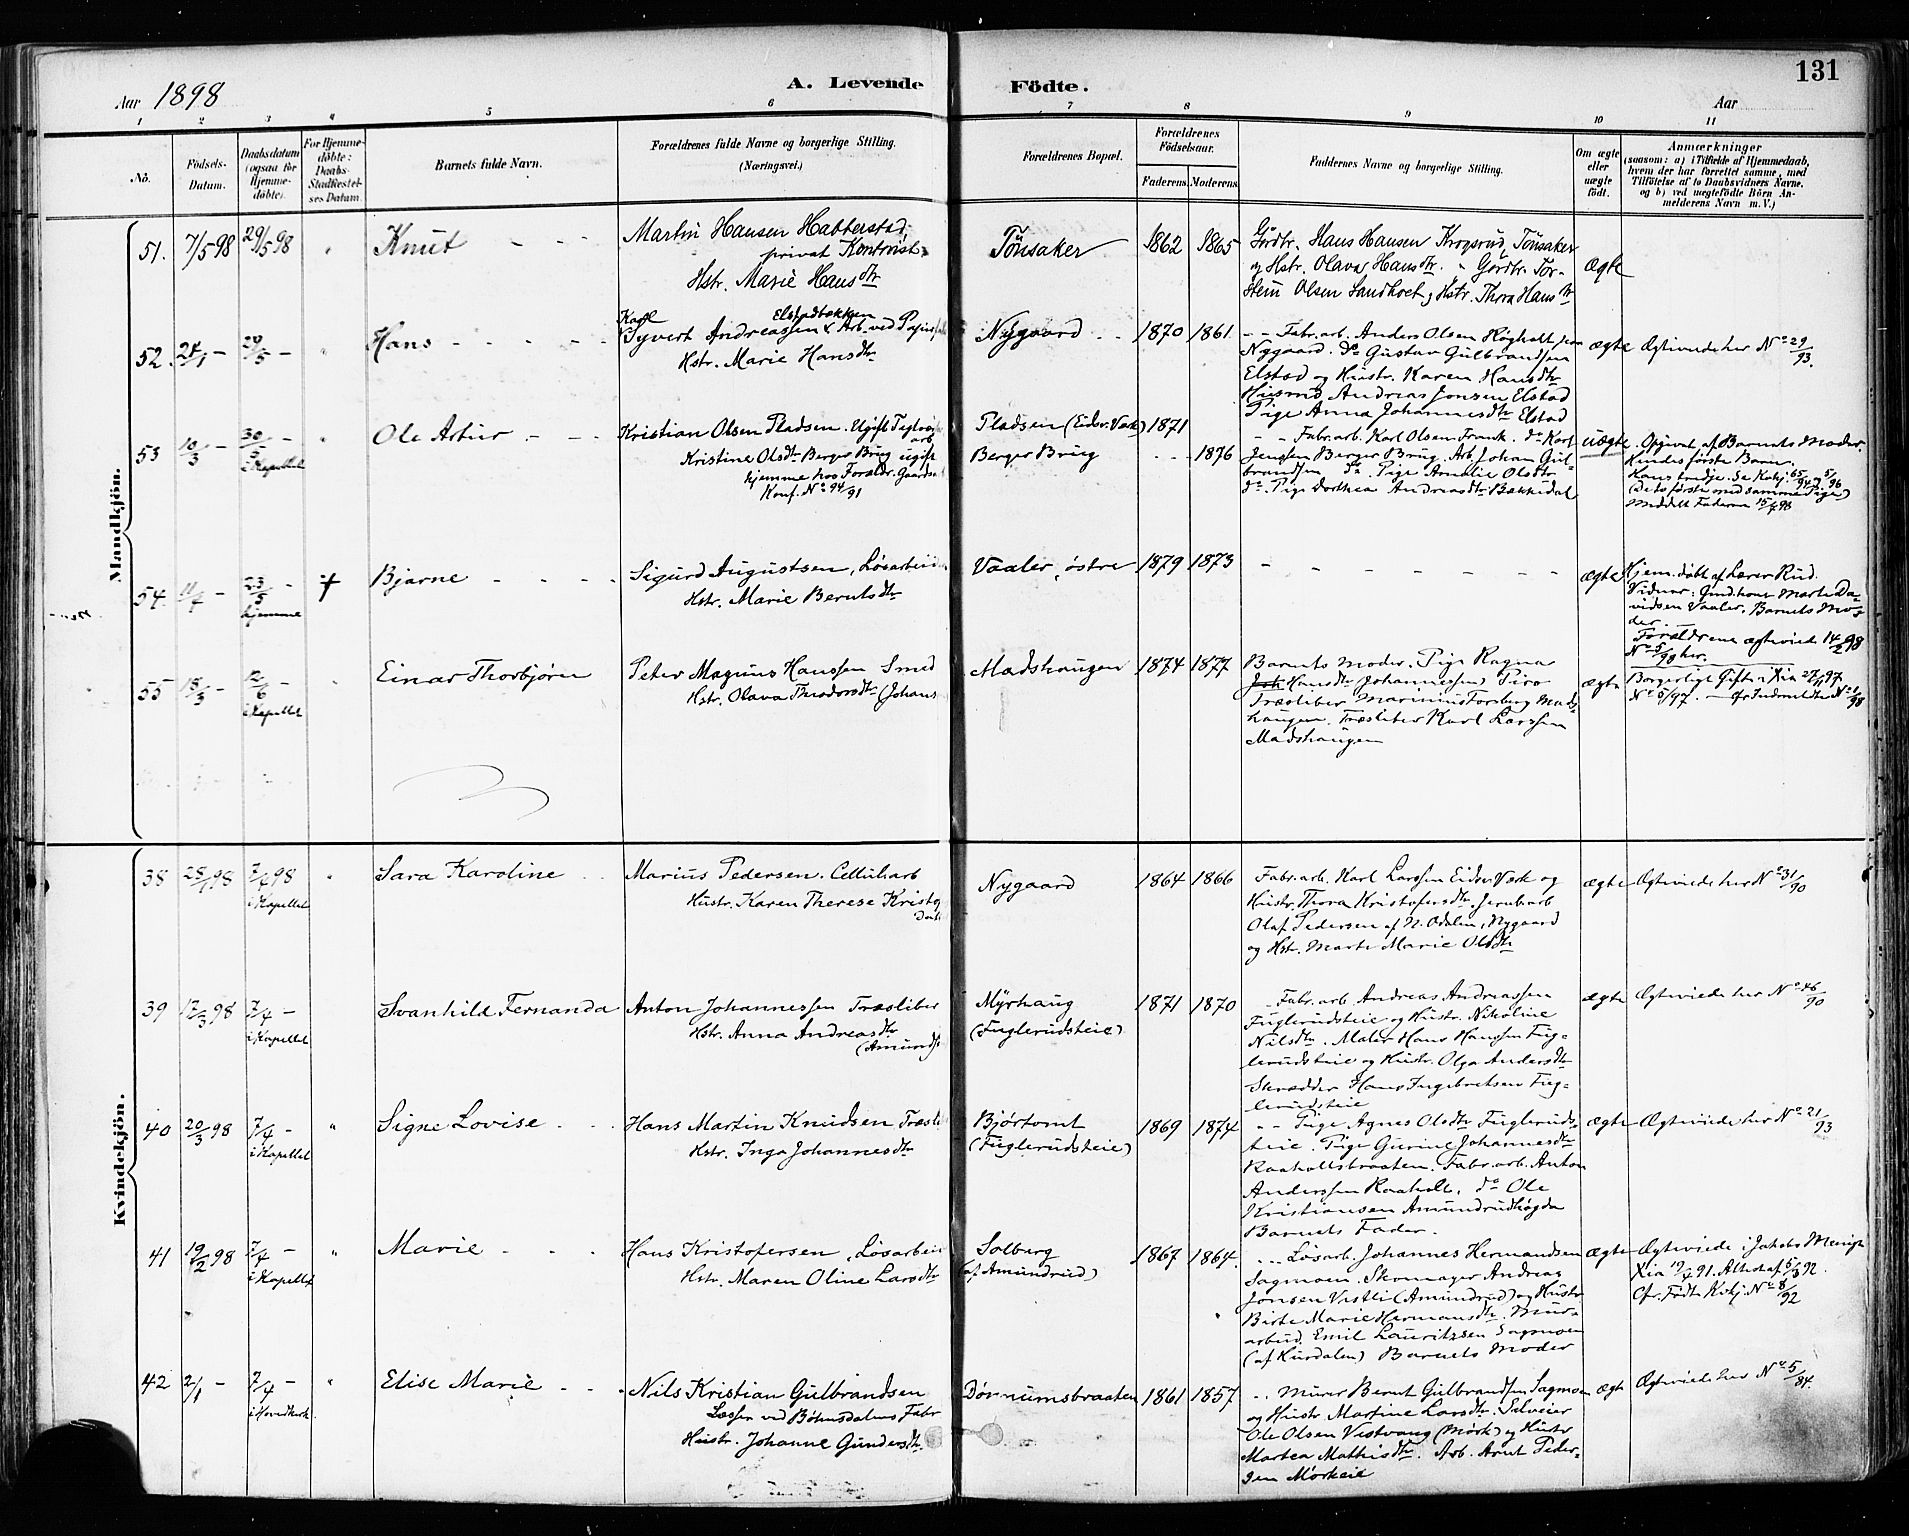 131
Aar 1898 A. Levende Födte. Aar
1 2 3 4 5 6 7 8 9 10 11
No.
Födsels-Datum.
Daabsdatum (ogsaa for Hjemme-döbte).
For Hjemme-döbte: Daabs-Stadfæstelses Datum.
Barnets fulde Navn.
Forældrenes fulde Navne og borgerlige Stilling.
(Næringsvei.)
Forældrenes Bopæl.
Forældrenes Födselsaar.
Faderens. Moderens.
Faddernes Navne og borgerlige Stilling.
Om ægte eller uægte födt.
Anmærkninger
(saasom: a) i Tilfælde af Hjemmedaab,
hvem der har forrettet samme, med
Tilföielse af to Daabsvidners Navne.
og b) ved uægtefödte Börn An-
melderens Navn m. V.)
Mandkjön.
51. 7/5 98 29/5 98 " Knut
Martin Hansen Hatterstad,
privat Kontorist
Hstr. Marie Hansdtr
Tönsaker 1862 1865
Gdbr. Hans Hansen Krogsrud, Tönsaker
og Hstr. Olava Hansdtr. Gdbr. Tor-
stein Olsen Sandholt og Hstr. Thora Hansdtr
ægte
52. 24/1 - 29/5 - " Hans
Karl Elstadbakken
Syvert Andreassen Arb. ved Papirfabr
Hstr. Marie Hansdtr
Nygaard 1870 1861
Fabr.arb. Anders Olsen Högholt
Nygaard. do Gustav Gulbrandsen
Elstad og Hustr. Karen Hansdtr
Husmd. Andreas Jonsen Elstad
Pige Anna Johannesdtr Elstad
ægte Ægteviede her No 29/93.
53 10/3 - 30/5 - i Kapellet " Ole Artur
Kristian Olsen Pladsen. Ugift
Kristine Olsdtr Berger Brug ugift
hjemme hos Foreldr.
Konf. No 94/91
Pladsen (Eidsv. Værk) 1871
Berger Brug 1876
Fabr.arb. Karl Olsen Frank. do Karl
Jenssen Berger Brug. Arb. Johan Gul-
brandsen do. Pige Amalie Olsdtr
do. Pige Dorthea Andreasdtr Bækkedal
uægte Opgivet af Barnets Moder.
Hendes første Barn.
Hans tredje. Se Kbkj. 65/94 og 5/96
(de to første med samme Pige)
Meddelt Faderen 15/7 98
54. 11/4 - 23/5 - hjemme † Bjarne
Sigurd Augustsen, Løsarbeider
Hstr. Marie Berntsdtr
Vaaler, østre 1879 1873
ægte Hjem.døbt af Lærer Rud.
Vidner: Gmd.kone Marte Da-
vidsen Vaaler. Barnets Mo-
der.
Forældrene ægteviede 14/2 98
No 5/98 her.
55 15/3 - 12/6 - i Kapellet " Einar Thorbjørn
Peter Magnus Hanssen Smed
Hstr. Olava Theodorsdtr (Johans
Madshaugen 1874 1877
Barnets Moder. Pige Ragna
Hansdtr (Johannessen) Piro
Træsliber Marinius Forsberg Mads-
haugen. Træsliber Karl Larssen
Madshaugen
ægte Borgerligt Gifte i Xia 27/11 97
No 5/97.
Kvindekjön.
38 28/1 98 7/4 98 i Kapellet " Sara Karoline
Marius Pedersen. Cellul.arb
Hustr. Karen Therese Kristof
Datt
Nygaard 1864 1866
Fabr.arb. Karl Larssen Eidsv. Værk og
Hustr. Thora Kristofersdtr. Jernb.arb
Olaf Pedersen af N. Odalen, Nygaard
og Hstr. Marte Marie Olsdtr
ægte Ægteviede her No 31/90
39 17/3 98 7/4 - i Kapellet Svanhild Fernanda
Anton Johannessen Træsliber
Hstr. Anna Andreasdtr
(Amunds
Myrhaug
(Fuglerudseie)
1871 1870
Fabr.arb. Andreas Andreassen
Fuglerudseie og Hustr. Nikoline
Nilsdtr. Maler Hans Hanssen Fug-
lerudseie og Hustr. Olga Andersdtr
Skrædder Hans Ingebretsen Fug-
lerudseie
ægte Ægteviede her No 46/90
40 20/3 98 7/4 - i Kapellet " Signe Lovise
Hans Martin Knudsen Træsli
Hstr. Inga Johannesdtr
Bjørtomt
(Fuglerudseie)
1869 1874
Pige Agnes Olsdtr Fuglerud-
seie. Pige Gurine Johannesdtr
Raaholtbraaten. Fabr.arb. Anton
Anderssen Raaholt. do Ole
Kristiansen Amundrudhøgda
Barnets Fader.
ægte Ægteviede her No 21/93
41 19/2 98 7/4 - i Kapellet " Marie
Hans Kristofersen, Løsarbei
Hstr. Maren Oline Larsdtr
Solberg
(af Amundrud)
1867 1864.
Løsarb. Johannes Hermandsen
Sagmoen. Skomager Andreas
Jonsen Vestli (Amundrud) og Hustr
Birte Marie Hermansdtr. Mur-
arbeid. Emil Lauritzsen Sagmoen
(af Hurdalen) Barnets Moder
ægte Ægteviede i Jakobs Menigh
Xia 19/4 91. Attest af 5/3 92.
Cfr. Födte Kbkj. No 8/92
42 2/1 - 7/4 - i Hovedkirk. " Elise Marie
Nils Kristian Gulbrandsen
Læsser ved Bøhnsdalens Fabr
Hustr. Johanne Gundersdtr.
Dønnumsbraaten 1861 1857
Murer Bernt Gulbrandsen Sagmoen
og Hustr. Martine Larsdtr. Selveier
Ole Olsen Vestvang (Mørk) og Hustr
Martea Mathisdtr. Arb. Arnt Peder-
sen Mørkeie
ægte Ægteviede her No 5/84.